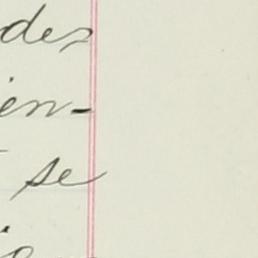 des
ien-
se